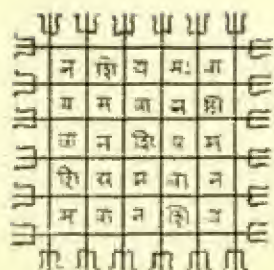 न शि य मः वा
य म वा न शि
वा न शि य म
शि य म वा न
म वा न शि य